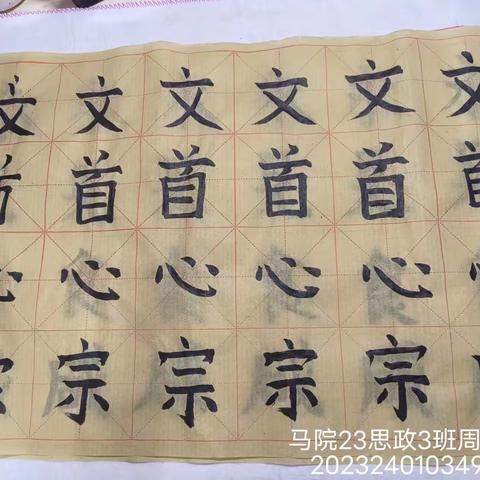 文文文文文文
首首首首首首
心心心心心心
宗宗宗宗宗宗
马院23思政3班周
202324010349